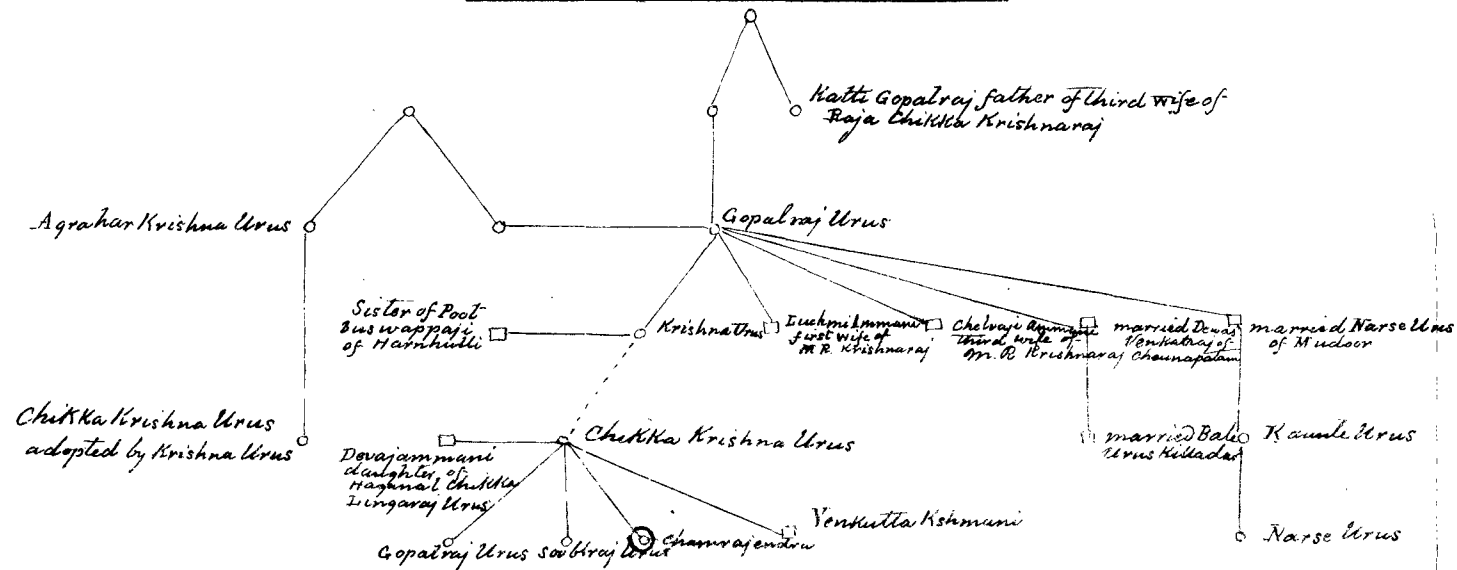 Katti Gopalraj father of third wife of
Raja Chikka Krishnaraj
Agrahar Krishna Urus
Gopalraj Urus
Sister of Poot
Buswappaji
of Harnhulli
Krishna Urus
Luchmi Ammani
first wife of
M R. Krishnaraj
Chelvaji Ammani
third wife of
M. R Krishnaraj
married Dewas
Venkatraj of
Chounapatam
married Narse Urus
of Mudoor
Chikka Krishna Urus
adopted by Krishna Urus
Devajammani
daughter of
Haganal Chikka
Lingaraj Urus
Chikka Krishna Urus
married Bale
Urus Killadar
Kaunle Urus
Gopalraj Urus
Soobhraj Urus
Chamrajendra
Venkutta Kshmani
Narse Urus